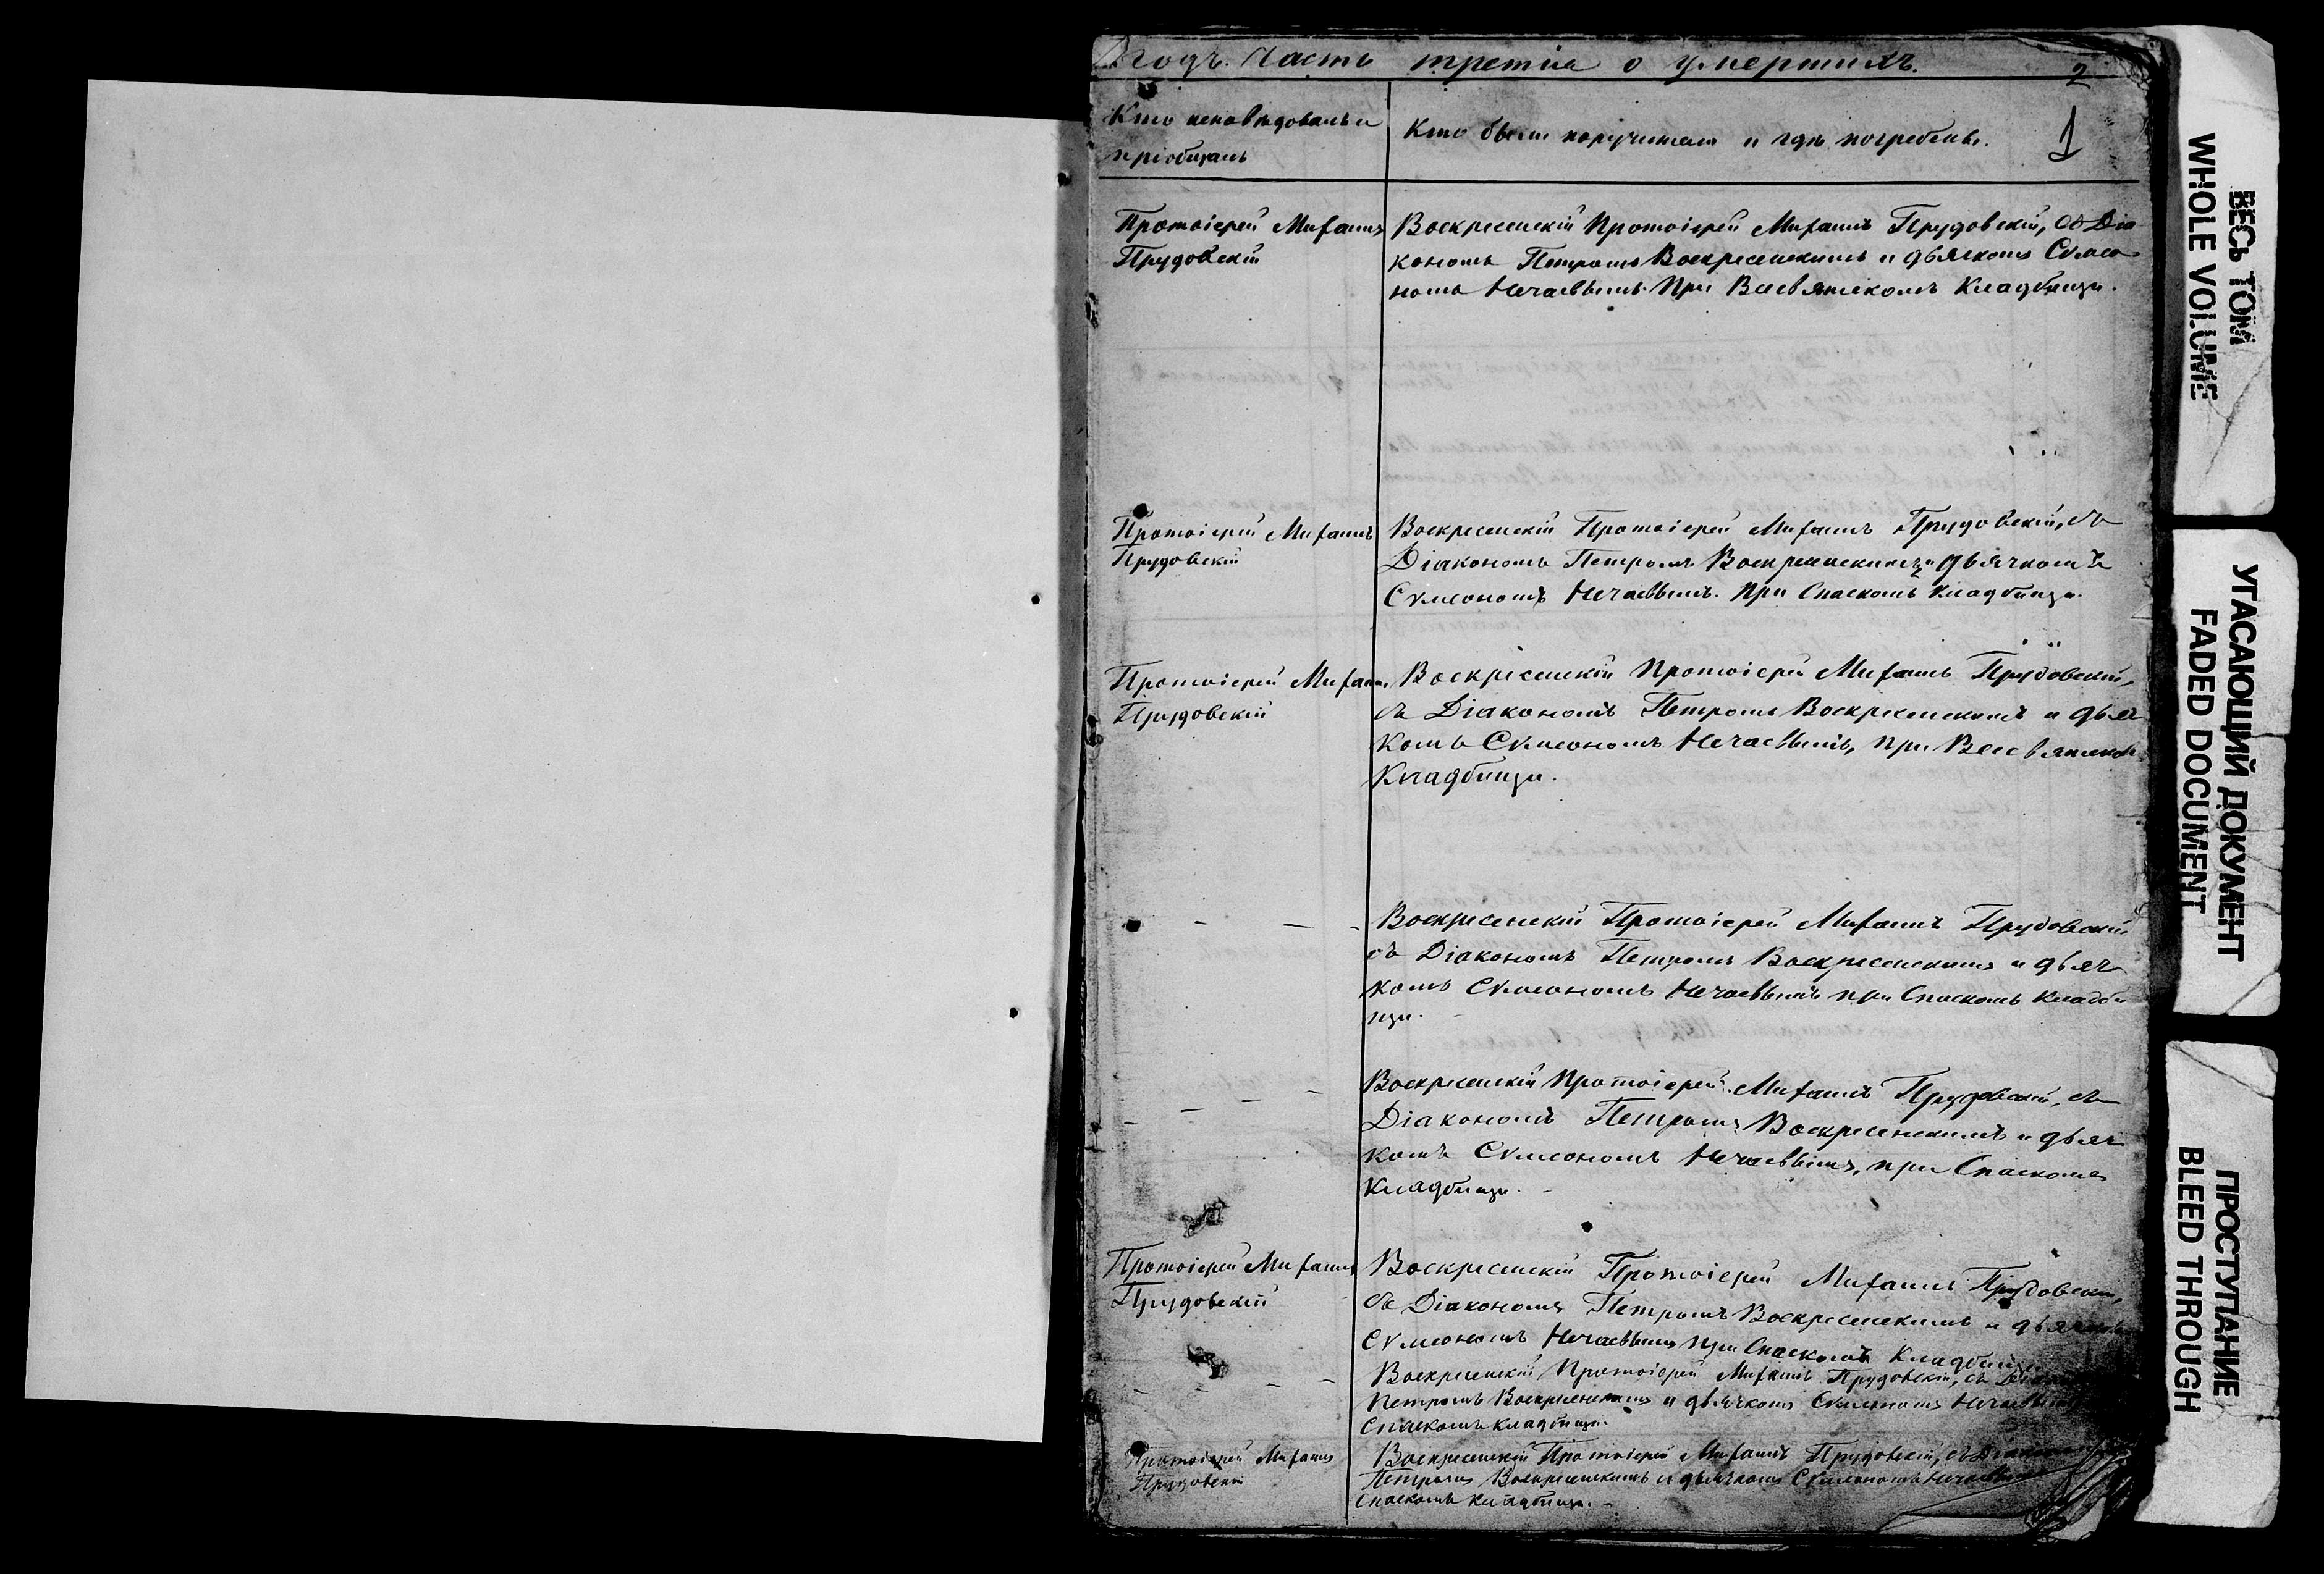 Годъ. Часть третія о умершихъ.
2
Кто исповѣдовалъ и
пріобщалъ
Кто были поручители и гдѣ погребены.
1
Протоіерей Михаилъ
Прудовскій
Воскресенскій Протоіерей Михаилъ Прудовскій, съ Діа
кономъ Петромъ Воскресенскимъ и дьячкомъ Сѵмео
номъ Нечаевымъ. При Всесвятскомъ Кладбищѣ.
Протоіерей Михаилъ
Прудовскій
Воскресенскій Протоіерей Михаилъ Прудовскій, съ
Діакономъ Петромъ Воскресенскимъ и дьячкомъ
Сѵмеономъ Нечаевымъ. При Спаскомъ кладбищѣ.
Протоіерей Михаилъ
Прудовскій
Воскресенскій Протоіерей Михаилъ Прудовскій,
съ Діакономъ Петромъ Воскресенскимъ и дьяч
комъ Сѵмеономъ Нечаевымъ, при Всесвятском
Кладбищѣ.
Воскресенскій Протоіерей Михаилъ Прудовскій
съ Діакономъ Петромъ Воскресенскимъ и дьяч
комъ Сѵмеономъ Нечаевымъ при Спаскомъ кладби
щѣ.
Воскресенскій Протоіерей Михаилъ Прудовскій, съ
Діакономъ Петромъ Воскресенскимъ и дьяч
комъ Сѵмеономъ Нечаевымъ, при Спаскомъ
Кладбищѣ.
Протоіерей Михаилъ
Прудовскій
Воскресенскій Протоіерей Михаилъ Прудовскій,
съ Діакономъ Петромъ Воскресенскимъ и дьячкомъ
Сѵмеономъ Нечаевымъ при Спаскомъ Кладбищѣ
Воскресенскій Протоіерей Михаилъ Прудовскій, съ
Петромъ Воскресенскимъ и дьячкомъ Сѵмеономъ Нечаевымъ
Спаскомъ кладбищѣ.
Протоіерей Михаилъ
Прудовскій
Воскресенскій Протоіерей Михаилъ Прудовскій, съ Діакономъ
Петромъ Воскресенскимъ и дьячкомъ Сѵмеономъ Нечаевымъ
Спаскомъ кладбищѣ.
ВЕСЬ ТОМ
WHOLE VOLUME
УГАСАЮЩИЙ ДОКУМЕНТ
FADED DOCUMENT
ПРОСТУПАНИЕ
BLEED THROUGH